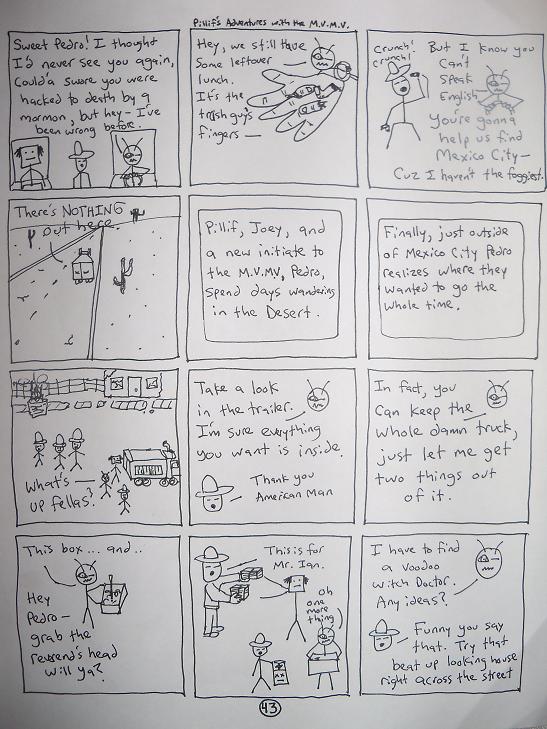 Pillif's Adventures with the M.V.M.V.
Sweet Pedro! I thought
I'd never see you again,
Could'a swore you were
hacked to death by a
mormon, but hey - I've
been wrong before.
Hey, we still have
Some leftover
lunch.
It's the
trash guy's
fingers -
Crunch!
crunch!
But I know you
Can't
Speak
English
You're gonna
help us find
Mexico City -
Cuz I haven't the foggiest.
There's NOTHING
out here.
Pillif, Joey, and
a new initiate to
the M.V.MV, Pedro,
spend days wandering
in the Desert.
Finally, just outside
of Mexico City Pedro
realizes where they
wanted to go the
whole time.
What's
up fellas?
Take a look
in the trailer.
I'm sure everything
you want is inside.
Thank you
American Man
In fact, you
Can keep the
whole damn truck,
just let me get
two things out
of it.
This box... and..
Hey
Pedro -
grab the
reverend's head
will ya?
This is for
Mr. Ian.
oh
one
more
thing
I have to find
a voodoo
witch Doctor.
Any ideas?
Funny you say
that. Try that
beat up looking house
right across the street
43